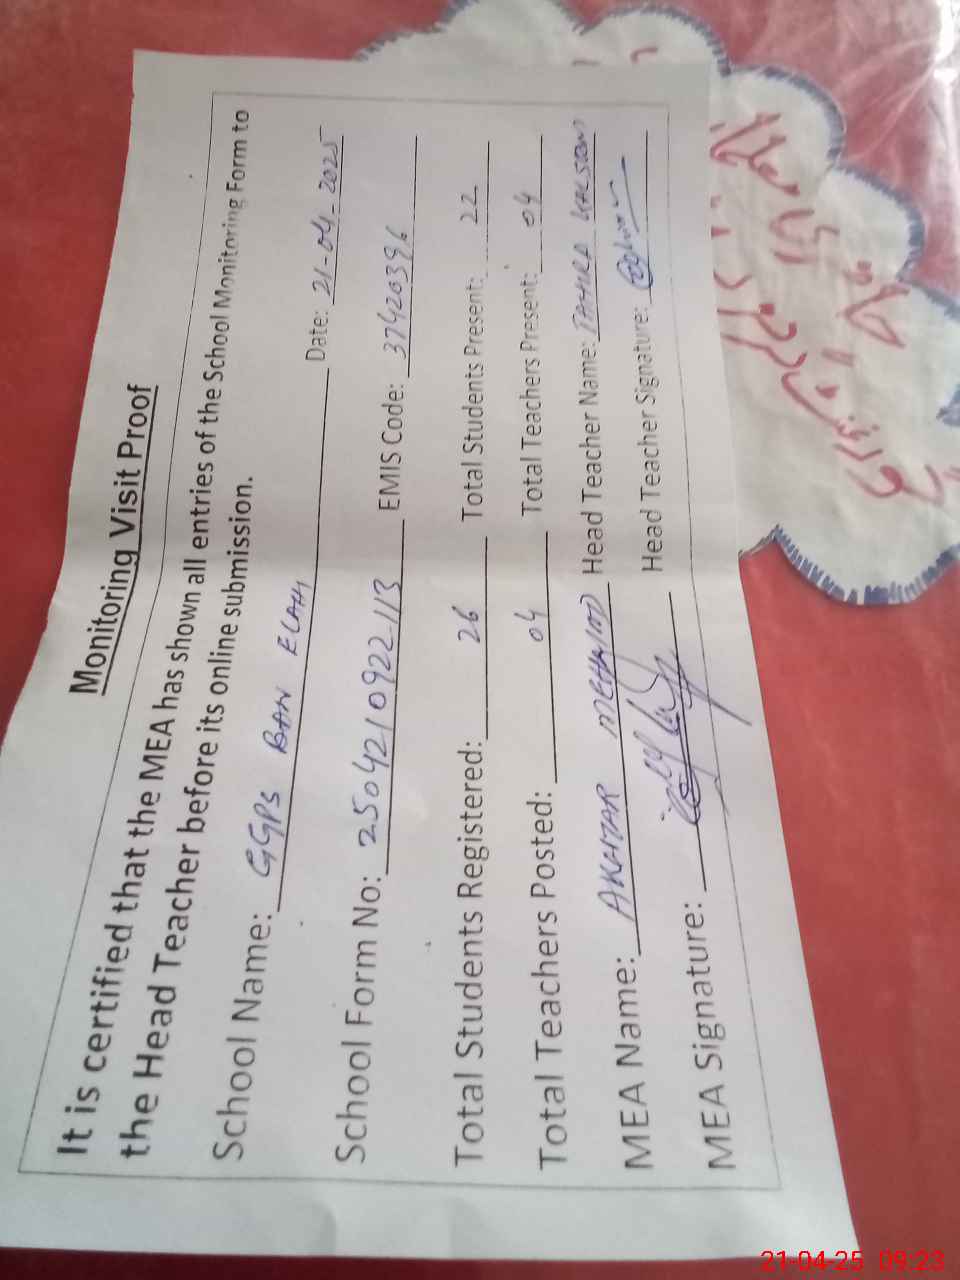 Monitoring Visit Proof
It is certified that the MEA has shown all entries of the School Monitoring Form to
the Head Teacher before its online submission.
School Name: GGPS BAN ELAHI Date: 21-04-2025
School Form No: 2504210922113 EMIS Code: 37420396
Total Students Registered: 26 Total Students Present: 22
Total Teachers Posted: 04 Total Teachers Present: 04
MEA Name: AKHTAR MEHMOOD Head Teacher Name: TAHIRA
MEA Signature: Head Teacher Signature:
21-04-25 09:23